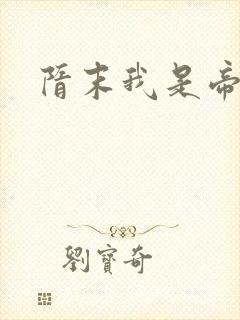 隋末我是帝
劉寶奇